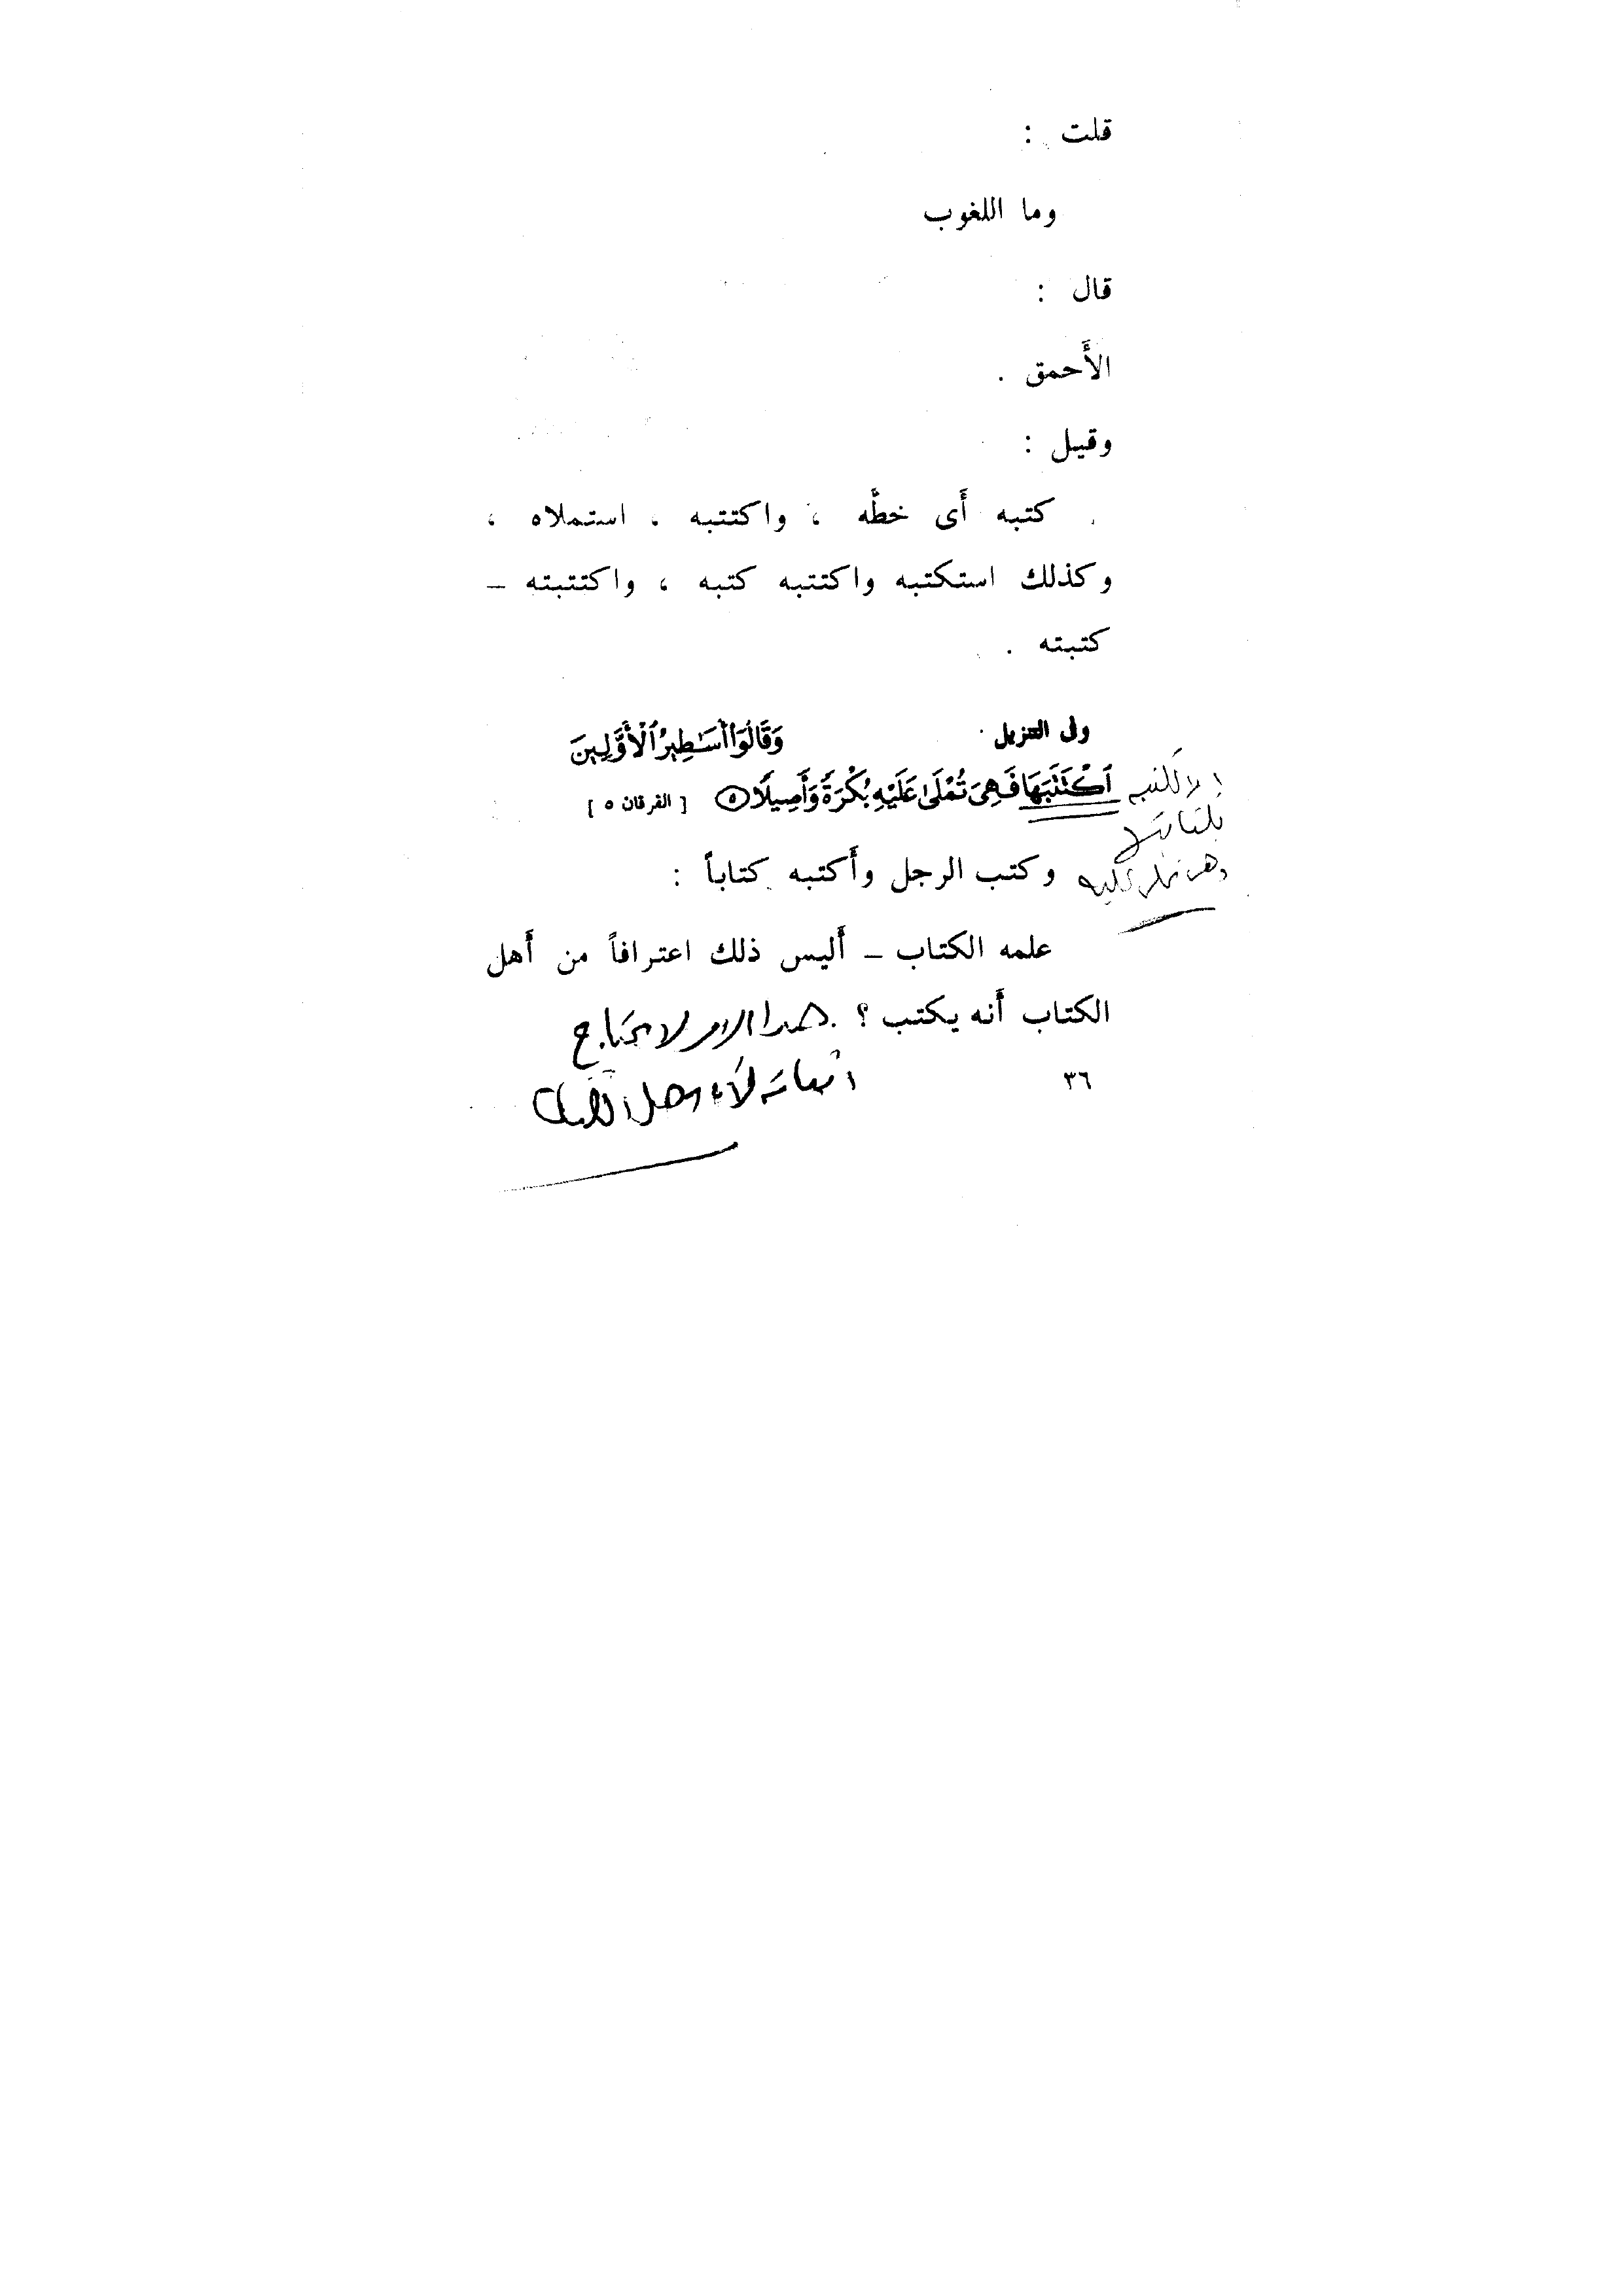 قلت :
وما اللغوب
قال :
الأَحمق .
وقيل :
كتبه أَى خطَّه ، واكتتبه . استملاه ،
وكذلك استكتبه واكتتبه كتبه ، واكتتبته –
كتبته .
وفى التنزيل وَقَالُوٓا۟ أَسَٰطِيرُ ٱلْأَوَّلِينَ
ٱكْتَتَبَهَا فَهِىَ تُمْلَىٰ عَلَيْهِ بُكْرَةً وَأَصِيلًا ۝٥ [ الفرقان ٥ ]
وكتب الرجل وأَكتبه كتاباً :
علمه الكتاب – أَليس ذلك اعترافاً من أَهل
الكتاب أَنه يكتب ؟ هذا الامر لا يحتاج
٣٦